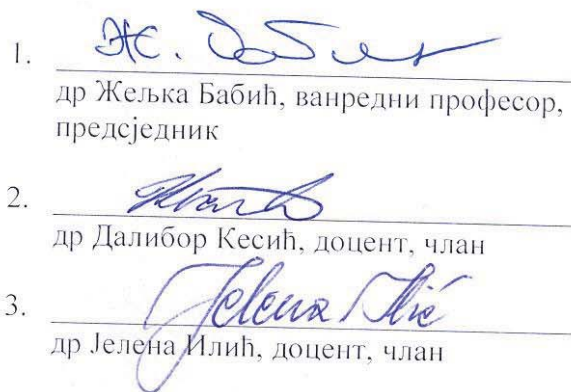 1. Ж. Бабић
др Жељка Бабић, ванредни професор,
предсједник
2.
др Далибор Кесић, доцент, члан
3. Jelena Ilić
др Јелена Илић, доцент, члан